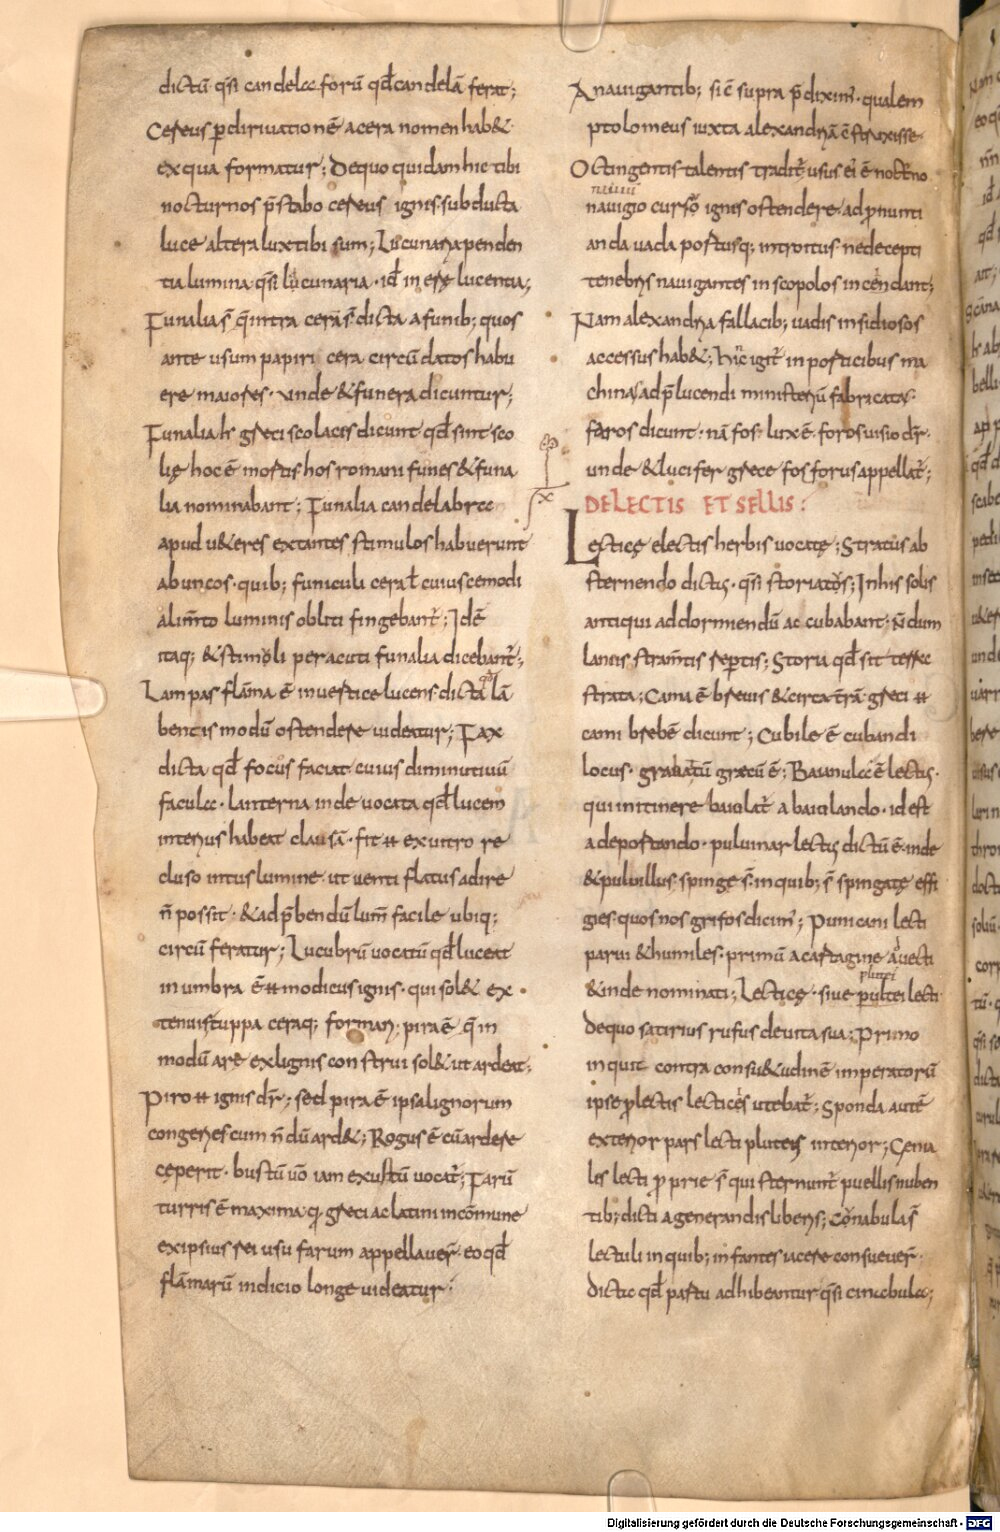 dictū q̄si candelae forū qđ candelā ferat;
Cereus ꝑ dirivationē a cera nomen hab&
ex qua formatur; De quo quidam hic tibi
nocturnos p̄stabo cereus ignis subducta
luce altera lux tibi sum; Lucunaria penden
tia lumina q̄si lucunaria · iđ in lucentia;
Funalia s̄ q̄ intra cerā s̄ dicta a funib; quos
ante usum papiri cera circū datos habu
ere maiores · unde & funera dicuntur;
Funalia greci scolaces dicunt qđ sint sco
lię hoc ē mortis hos romani funes & funa
lia nominabant; Funalia candelabrae
apud u&eres extantes stimulos habuerunt
ab uncos · quib; funiculi cerał cuiuscemodi
alim̄to luminis obliti fingebant̄; Idē
itaq; & stimoli peracuti funalia dicebant̄;
Lampas flāma ē in uertice lucens dicta qđ lā
bentis modū ostendere uideatur; Fax
dicta qđ focus faciat cuius diminutiuū
faculae · lanterna inde uocata qđ lucem
interius habeat clausā · fit ex uitro re
cluso intus lumine ut uenti flatus adire
n̄ possit · & ad p̄bendū lum̄ facile ubiq;
circū feratur; Lucubrū uocatū qđ luceat
in umbra ē modicus ignis · qui sol& ex
tenui stuppa ceraq; formari · pira ē q̄ in
modū are ex lignis construi sol& ut ardeat;
Piro ignis dr̄; sed pira ē ipsa lignorum
congeries cum n̄dū ard&; Rogus ē cū ardere
ceperit · bustū uō iam exustū uocat̄; Farū
turris ē maxima q greci ac latini in cōmune
ex ipsius rei usu farum appellauer̄ · eo qđ
flāmarū indicio longe uideatur ·
A nauigantib; sic̄ supra p̄dixim̄ · qualem
ptolomeus iuxta alexandriā c̄struxisse
Octingentis talentis tradit̄ usus eī ē noct̄no
nauium
nauigio cursō ignis ostendere · ad p̄nunti
anda uada portusq; introitus · ne decepti
tenebris nauigantes in scopolos incendant;
Nam alexandria fallacib; uadis insidiosos
accessus hab&; Hinc igit̄ in porticibus ma
chinas ad p̄lucendi ministeriū fabricatas
faros dicunt · nā fos · lux ē · foros uisio dr̄ ·
unde & lucifer grece fosforus appellat̄;
DE LECTIS ET SELLIS:
Lecticę electis herbis uocatę; Stratus ab
sternendo dictus · q̄si storiatos; In his solis
antiqui ad dormiendū ac cubabant · n̄dum
laneis stram̄tis repertis; Storia qđ sit terrae
strata; Cama ē breuis & circa trā · greci
cami breuē dicunt; Cubile ē cubandi
locus · grabatū grecū ē; Baianulae ē lectus ·
qui in itinere baiolat̄ a baiolando · id est
a deportando · puluinar lectis dictū ē · inde
& puluillus · spinge s̄ · in quib; s̄ spingatę effi
gies · quos nos grifos dicim̄; Punicani lecti
parui & humiles · primū a cartagine auecti
plutei
& inde nominati; Lecticę · siue pultei lecti
De quo satirius rufus de uita sua; Primo
inquit contra consu&udinē imperatorū
ipse p lectis lectices utebat̄; Sponda autē
exterior pars lecti pluteus interior; Genia
les lecti ꝓprie s̄ qui sternunt̄ puellis nuben
tib; dicti a generandis liberis; Conabula s̄
lectuli in quib; infantes iacere consueuer̄ ·
dictae qđ partu adhibeantur q̄si cinabulae;
Digitalisierung gefördert durch die Deutsche Forschungsgemeinschaft - DFG